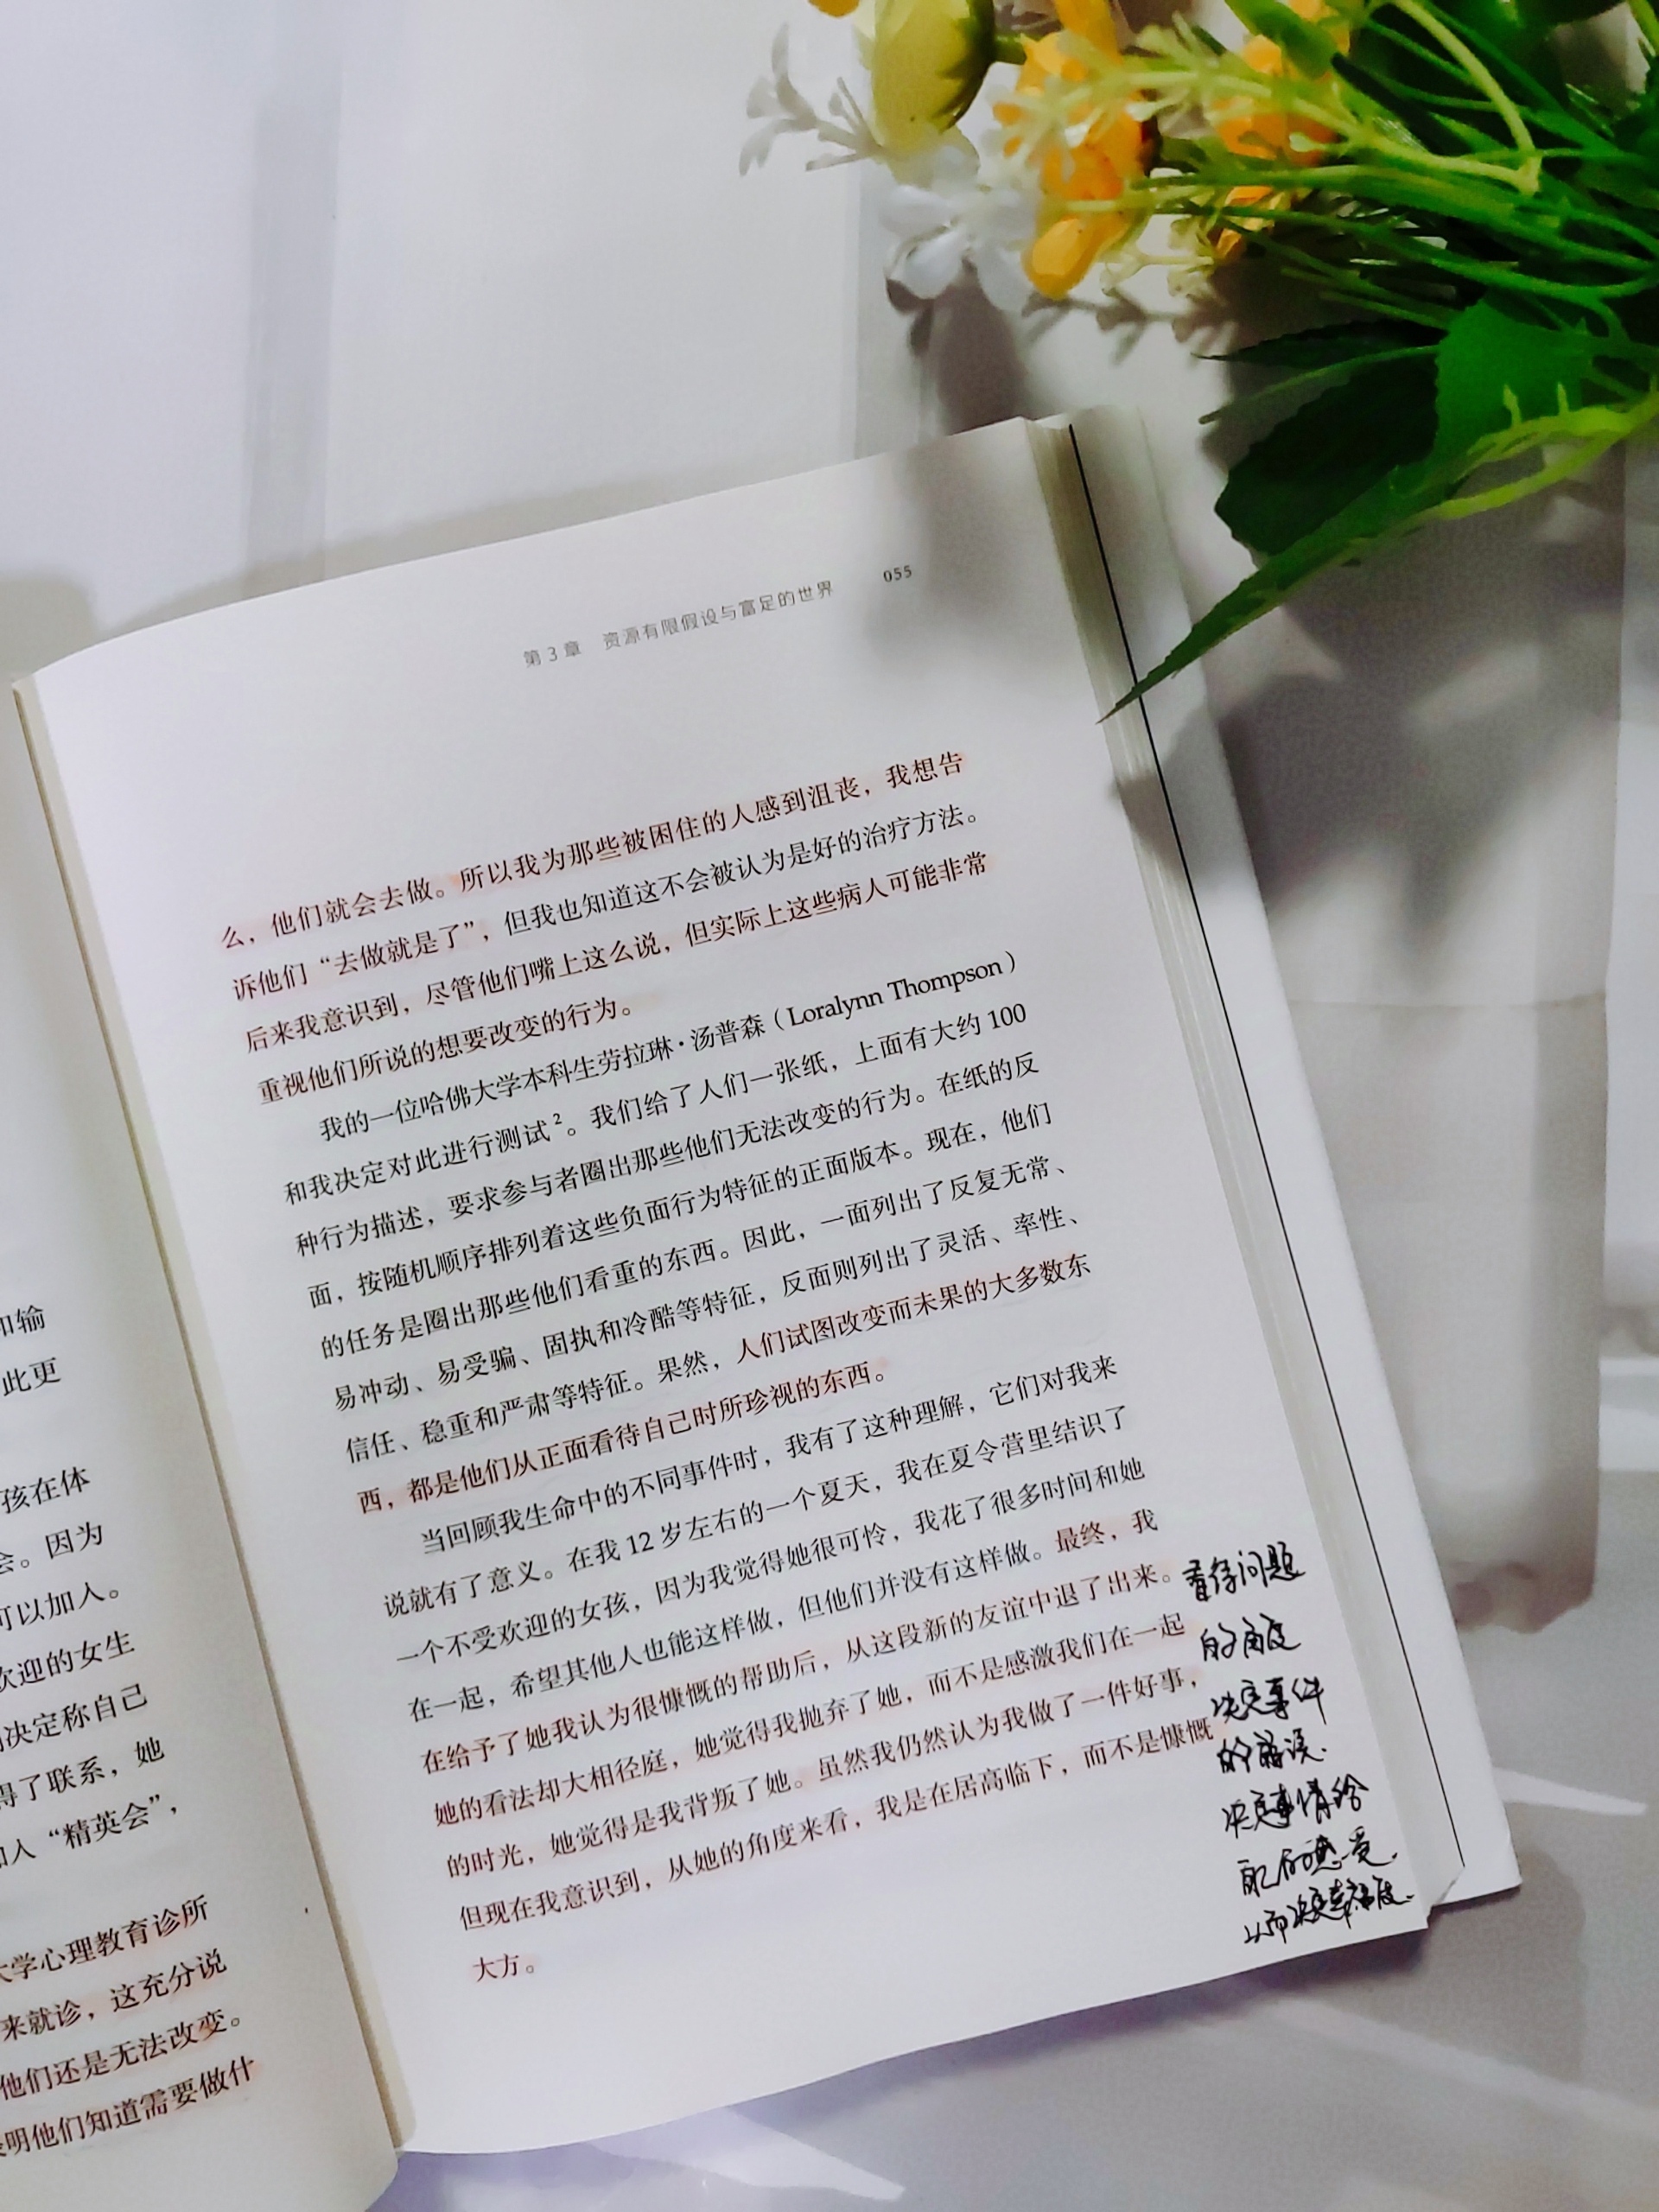 和输
此更
孩在体
会。因为
可以加入。
欢迎的女生
决定称自己
得了联系，她
加入“精英会”，
大学心理教育诊所
来就诊，这充分说
他们还是无法改变。
明他们知道需要做什
第3章 资源有限假设与富足的世界 055
么，他们就会去做。所以我为那些被困住的人感到沮丧，我想告
诉他们“去做就是了”，但我也知道这不会被认为是好的治疗方法。
后来我意识到，尽管他们嘴上这么说，但实际上这些病人可能非常
重视他们所说的想要改变的行为。
我的一位哈佛大学本科生劳拉琳·汤普森（Loralynn Thompson）
和我决定对此进行测试2。我们给了人们一张纸，上面有大约100
种行为描述，要求参与者圈出那些他们无法改变的行为。在纸的反
面，按随机顺序排列着这些负面行为特征的正面版本。现在，他们
的任务是圈出那些他们看重的东西。因此，一面列出了反复无常、
易冲动、易受骗、固执和冷酷等特征，反面则列出了灵活、率性、
信任、稳重和严肃等特征。果然，人们试图改变而未果的大多数东
西，都是他们从正面看待自己时所珍视的东西。
当回顾我生命中的不同事件时，我有了这种理解，它们对我来
说就有了意义。在我12岁左右的一个夏天，我在夏令营里结识了
一个不受欢迎的女孩，因为我觉得她很可怜，我花了很多时间和她
在一起，希望其他人也能这样做，但他们并没有这样做。最终，我
在给予了她我认为很慷慨的帮助后，从这段新的友谊中退了出来。
她的看法却大相径庭，她觉得我抛弃了她，而不是感激我们在一起
的时光，她觉得是我背叛了她。虽然我仍然认为我做了一件好事，
但现在我意识到，从她的角度来看，我是在居高临下，而不是慷慨
大方。
看待问题
的角度
决定事件
的
决定事情给
感受.
决定幸福度.